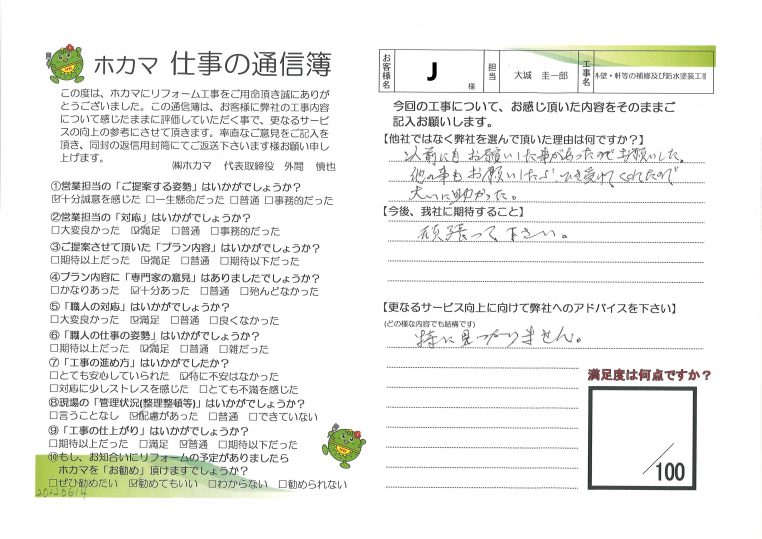 ホカマ 仕事の通信簿
この度は、ホカマにリフォーム工事をご用命頂き誠にありが
とうございました。この通信簿は、お客様に弊社の工事内容
について感じたままに評価していただく事で、更なるサービ
スの向上の参考にさせて頂きます。率直なご意見をご記入を
頂き、同封の返信用封筒にてご返送下さいます様お願い申し
上げます。
㈱ホカマ 代表取締役 外間 慎也
①営業担当の「ご提案する姿勢」はいかがでしょうか？
☑十分誠意を感じた □一生懸命だった □普通 □事務的だった
②営業担当の「対応」はいかがでしょうか？
□大変良かった ☑満足 □普通 □事務的だった
③ご提案させて頂いた「プラン内容」はいかがでしょうか？
□期待以上だった ☑満足 □普通 □期待以下だった
④プラン内容に「専門家の意見」はありましたでしょうか？
□かなりあった ☑十分あった □普通 □殆んどなかった
⑤「職人の対応」はいかがでしょうか？
□大変良かった ☑満足 □普通 □良くなかった
⑥「職人の仕事の姿勢」はいかがでしょうか？
□期待以上だった ☑満足 □普通 □雑だった
⑦「工事の進め方」はいかがでしたか？
□とても安心していられた ☑特に不安はなかった
□対応に少しストレスを感じた □とても不満を感じた
⑧現場の「管理状況(整理整頓等)」はいかがでしょうか？
□言うことなし ☑配慮があった □普通 □できていない
⑨「工事の仕上がり」はいかがでしょうか？
□期待以上だった □満足 ☑普通 □期待以下だった
⑩もし、お知合いにリフォームの予定がありましたら
ホカマを「お勧め」頂けますでしょうか？
□ぜひ勧めたい ☑勧めてもいい □わからない □勧められない
20220614
お客様名 J 様 担当 大城 圭一郎 工事名 外壁・軒等の補修及び防水塗装工事
今回の工事について、お感じ頂いた内容をそのままご
記入お願いします。
【他社ではなく弊社を選んで頂いた理由は何ですか？】
以前にもお願いした事があったのでお願いした。
他の事もお願いしたらひき受けてくれたので
大いに助かった。
【今後、我社に期待すること】
頑張って下さい。
【更なるサービス向上に向けて弊社へのアドバイスを下さい】
(どの様な内容でも結構です)
特に見つかりません。
満足度は何点ですか？
/100